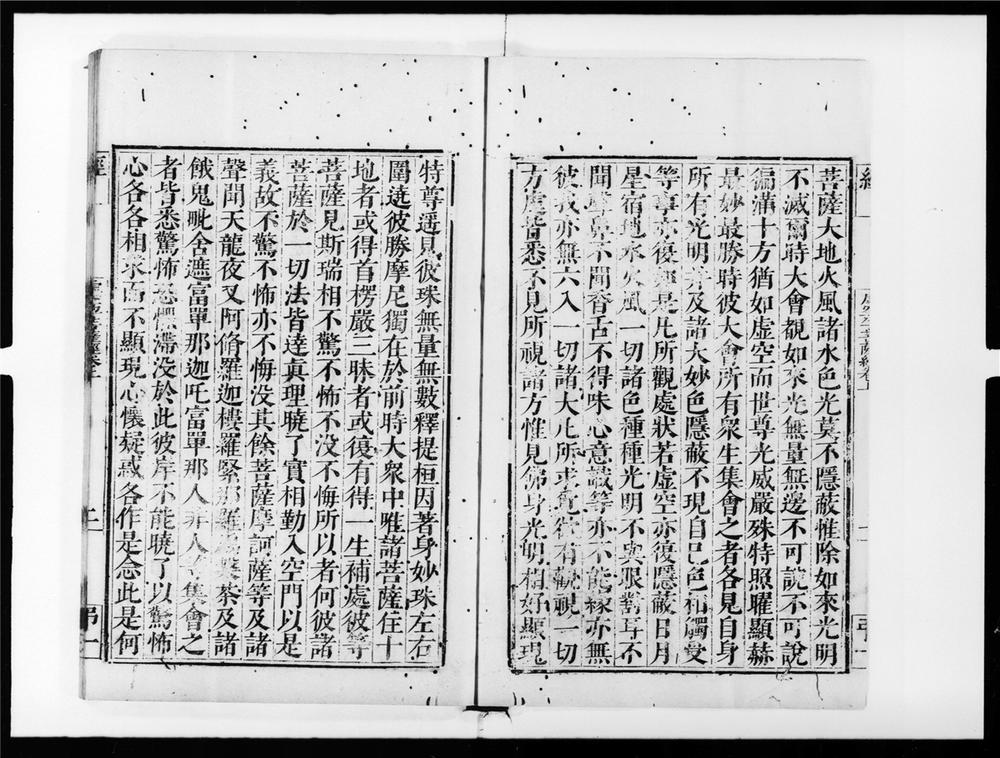 菩薩大地火風諸水色光莫不隱蔽惟除如來光明
不滅爾時大會覩如來光無量無邊不可說不可說
徧滿十方猶如虛空而世尊光威嚴殊特照曜顯赫
最妙最勝時彼大會所有衆生集會之者各見自身
所有光明并及諸大妙色隱蔽不現自已色相觸受
等事亦復如是凡所觀處狀若虛空亦復隱蔽日月
星宿地水火風一切諸色種種光明不與眼對耳不
聞聲鼻不聞香舌不得味心意識等亦不能緣亦無
彼我亦無六入一切諸大凡所求覓從有觀視一切
方處皆悉不見所視諸方惟見佛身光明相好顯現
特尊遥見彼珠無量無數釋提桓因著身妙珠左右
圍遶彼勝摩尼獨在於前時大衆中唯諸菩薩住十
地者或得首楞嚴三昧者或復有得一生補處彼等
菩薩見斯瑞相不驚不怖不没不悔所以者何彼諸
菩薩於一切法皆達真理曉了實相勤入空門以是
義故不驚不怖亦不悔没其餘菩薩摩訶薩等及諸
聲聞天龍夜叉阿脩羅迦樓羅緊那羅 茶及諸
餓鬼毗舍遮富單那迦吒富單那人非人等集會之
者皆悉驚怖恐懼滯没於此彼岸不能曉了以驚怖
心各各相求而不顯現心懷疑惑各作是念此是何